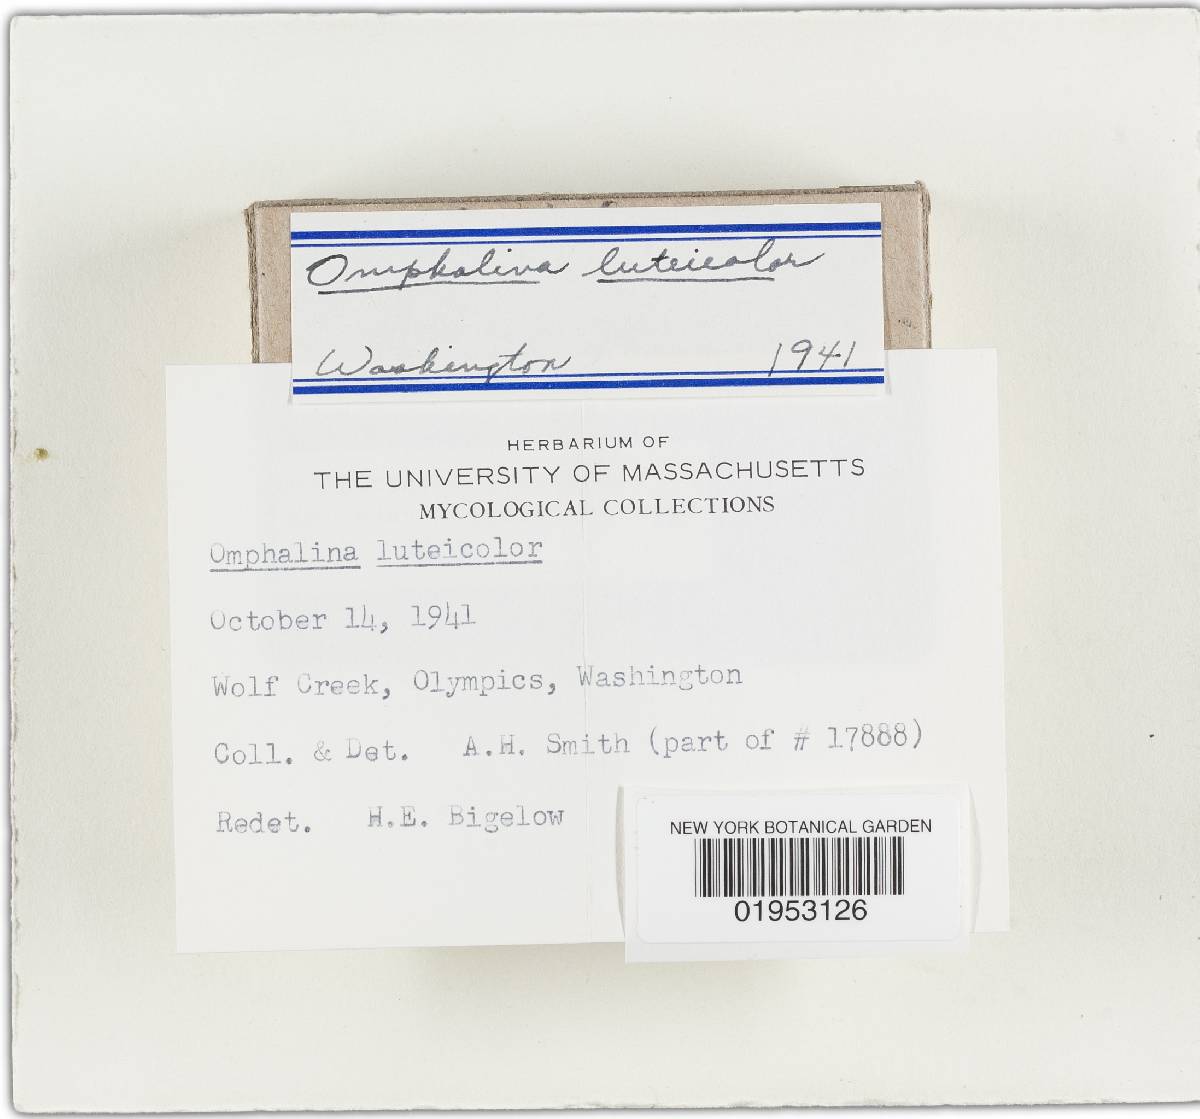 Omphalina luteicolor
Washington 1941
HERBARIUM OF
THE UNIVERSITY OF MASSACHUSETTS
MYCOLOGICAL COLLECTIONS
Omphalina luteicolor
October 14, 1941
Wolf Creek, Olympics, Washington
Coll. & Det. A.H. Smith (part of # 17888)
Redet. H.E. Bigelow
NEW YORK BOTANICAL GARDEN
01953126